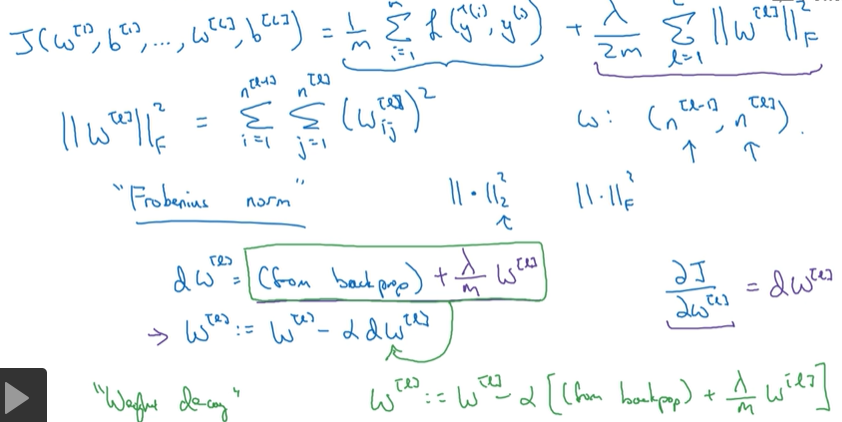 J(w^[1], b^[1], ..., w^[L], b^[L]) = 1/m ∑_{i=1}^{m} L(ŷ^(i), y^(i)) + λ/2m ∑_{l=1}^{L} ||w^[l]||²_F
||w^[l]||²_F = ∑_{i=1}^{n^[l-1]} ∑_{j=1}^{n^[l]} (w_ij^[l])² w: (n^[l-1], n^[l]).
"Frobenius norm" ||·||²_2 ||·||²_F
dw^[l] = (from backprop) + λ/m w^[l] ∂J/∂w^[l] = dw^[l]
→ w^[l] := w^[l] - α dw^[l]
"Weight decay" w^[l] := w^[l] - α [(from backprop) + λ/m w^[l]]